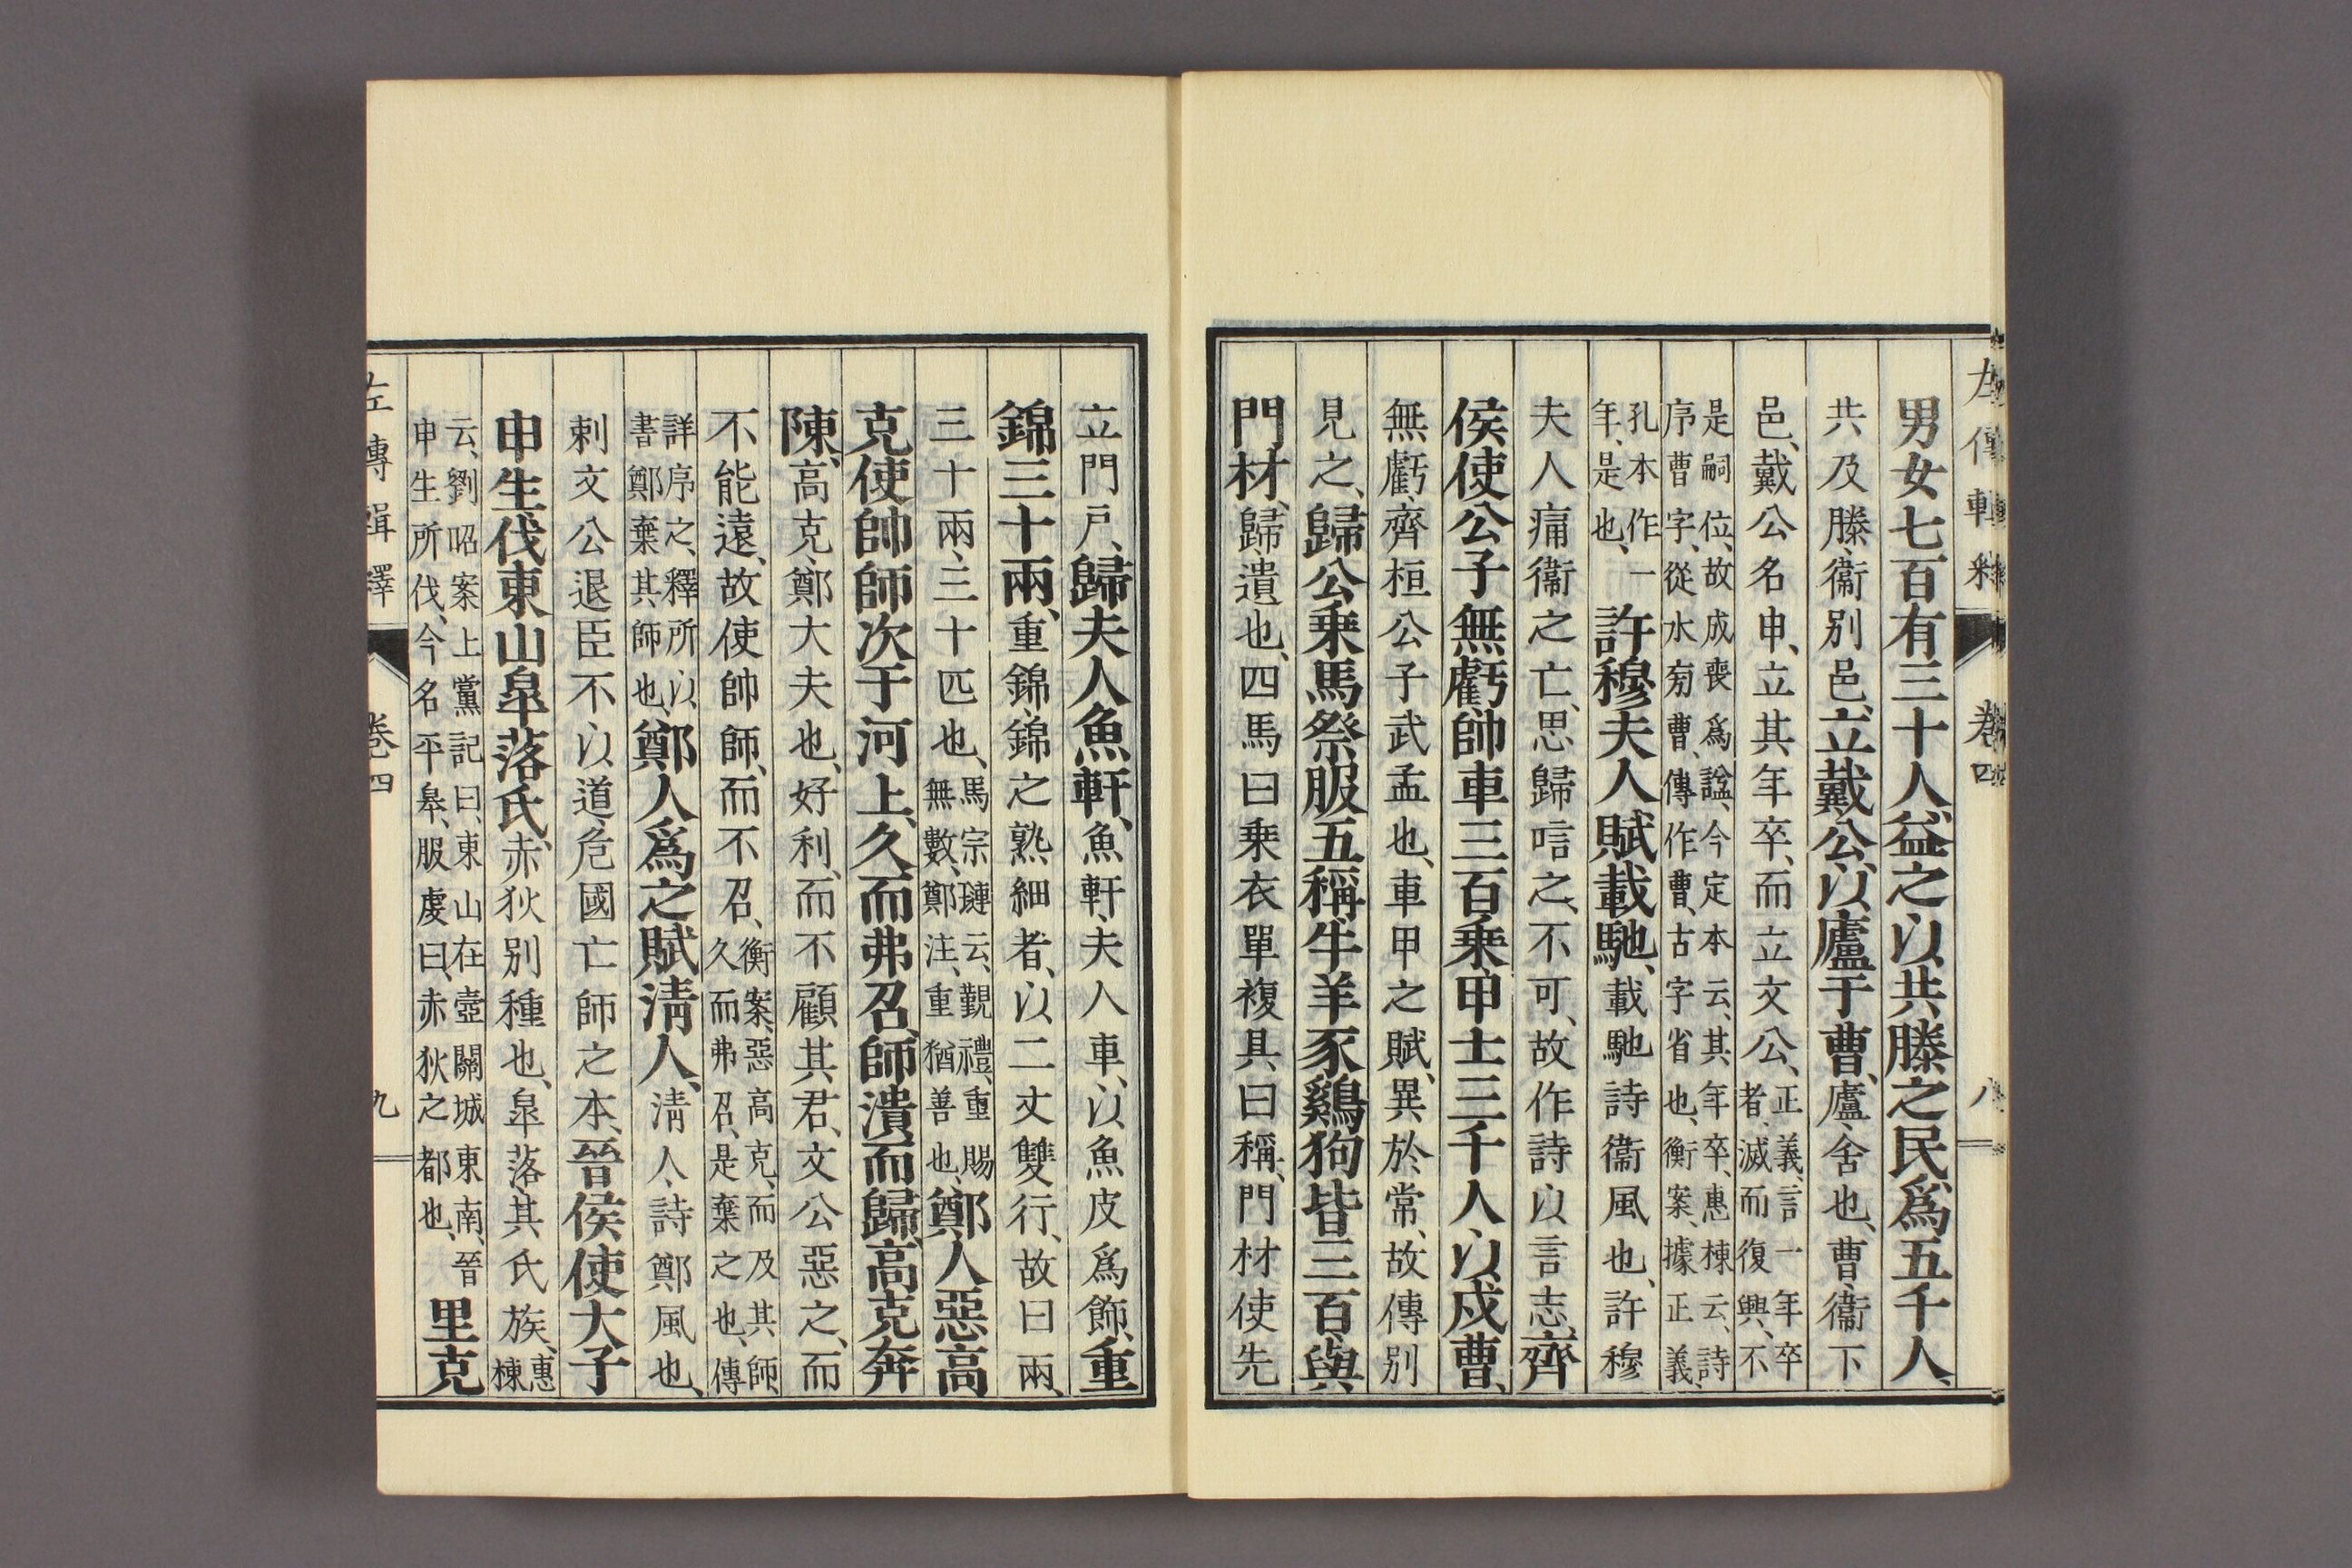 男女七百有三十人、益之以共滕之民、爲五千人、
共及滕、衞別邑、立戴公、以廬于曹、廬、舍也、曹、衞下
邑、戴公名申、立其年卒、而立文公、正義、言一年卒
者、滅而復興、不
是嗣位、故成喪爲諡、今定本云、其年卒、惠棟云、詩
序曹字、從水旁曹、傳作曹、古字省也、衡案、據正義、
孔本作一
年、是也、許穆夫人賦載馳、載馳詩衞風也、許穆
夫人痛衞之亡、思歸唁之、不可、故作詩以言志、齊
侯使公子無虧帥車三百乘、甲士三千人、以戍曹、
無虧、齊桓公子武孟也、車甲之賦、異於常、故傳別
見之、歸公乘馬、祭服五稱、牛羊豕雞狗皆三百、與
門材、歸、遺也、四馬曰乘、衣單複具、曰稱、門材使先
左傳輯釋 卷四 八
立門戶、歸夫人魚軒、魚軒、夫人車、以魚皮爲飾、重
錦三十兩、重錦、錦之熟細者、以二丈雙行、故曰兩、
三十兩、三十匹也、馬宗璉云、覲禮、重賜
無數、鄭注、重猶善也、鄭人惡高
克、使帥師次于河上、久而弗召、師潰而歸、高克奔
陳、高克、鄭大夫也、好利、而不顧其君、文公惡之、而
不能遠、故使帥師、而不召、衡案、惡高克、而及其師、
久而弗召、是棄之也、傳
詳序之、釋所以
書鄭棄其師也、鄭人爲之賦淸人、淸人、詩鄭風也、
刺文公退臣不以道、危國亡師之本、晉侯使大子
申生伐東山皐落氏、赤狄別種也、皐落、其氏族、惠
棟
云、劉昭案上黨記曰、東山在壺關城東南、晉
申生所伐、今名平皋、服虔曰、赤狄之都也、里克
左傳輯釋 卷四 九